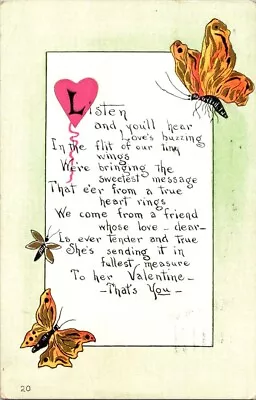 Listen
and you'll hear
Love's buzzing
In the flit of our tiny
wings
We're bringing the
sweetest message
That e'er from a true
heart rings
We come from a friend
whose love - dear -
Is ever tender and true
She's sending it in
fullest measure
To her Valentine -
- That's You -
20